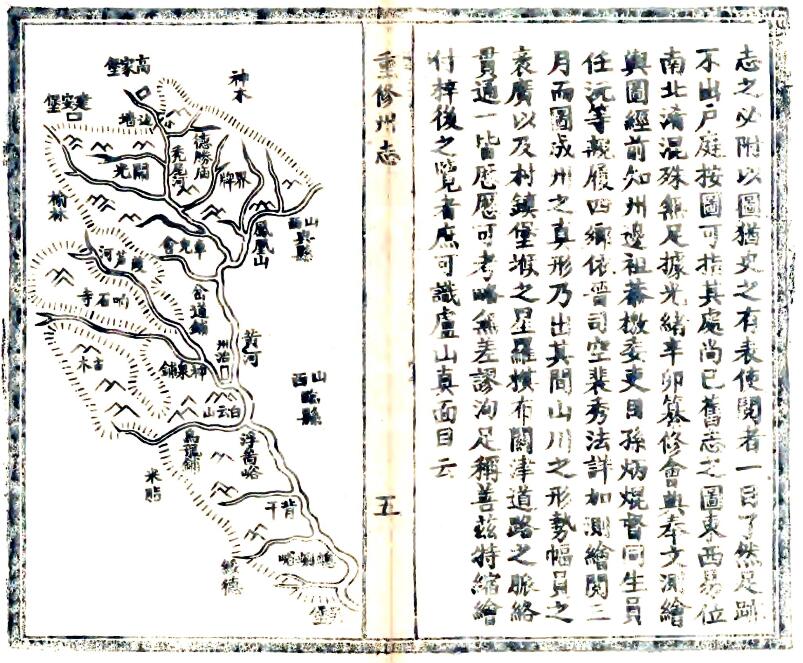 志之必附以圖猶史之有表使閱者一目了然足跡
不出戶庭按圖可指其處尚已舊志之圖東西易位
南北淆混殊無足據光緒辛卯纂修會典奉文測繪
輿圖經前知州邊祖恭檄委吏目孫炳焜督同生員
任沅等親履四鄉依晉司空裴秀法詳加測繪閱三
月而圖成州之真形乃出其間山川之形勢幅員之
袤廣以及村鎮堡堠之星羅棋布關津道路之脈絡
貫通一皆歷歷可考略無差謬洵足稱善茲特縮繪
付梓後之覽者庶可識廬山真面目云
重修州志
五
神木
高家堡
建安堡
邊墻
德勝庙
禿尾河
開光
界牌
山西興縣
鳳凰山
榆林
車會
葭芦河
响石寺
岔道鋪
黃河
州治
神泉鋪
古木
山西臨縣
白云山
烏龍鋪
浮圖峪
米脂
背干
螅蜊峪
綏德